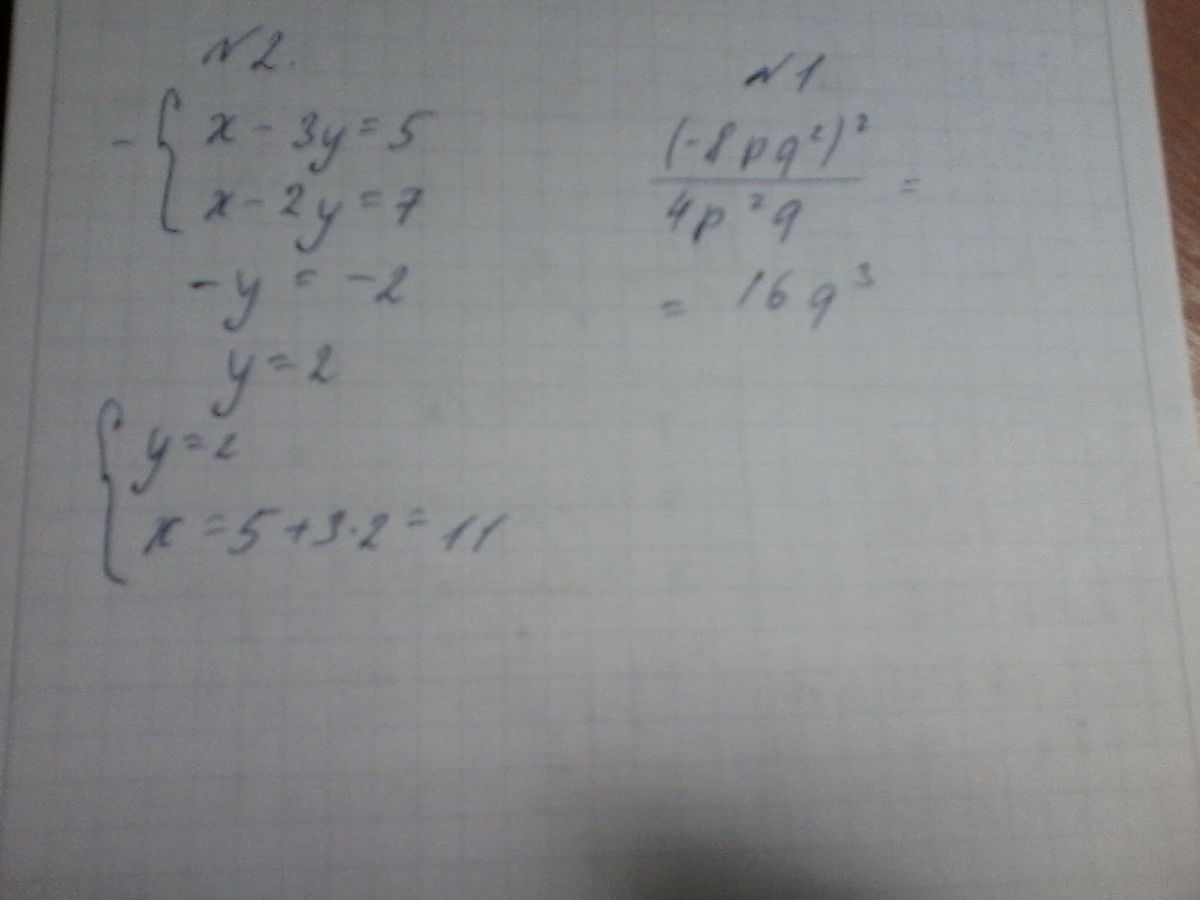 №2.
- { x - 3y = 5
x - 2y = 7
-y = -2
y = 2
{ y = 2
x = 5 + 3·2 = 11
№1
(-8pq²)²
/ 4p²q =
= 16q³